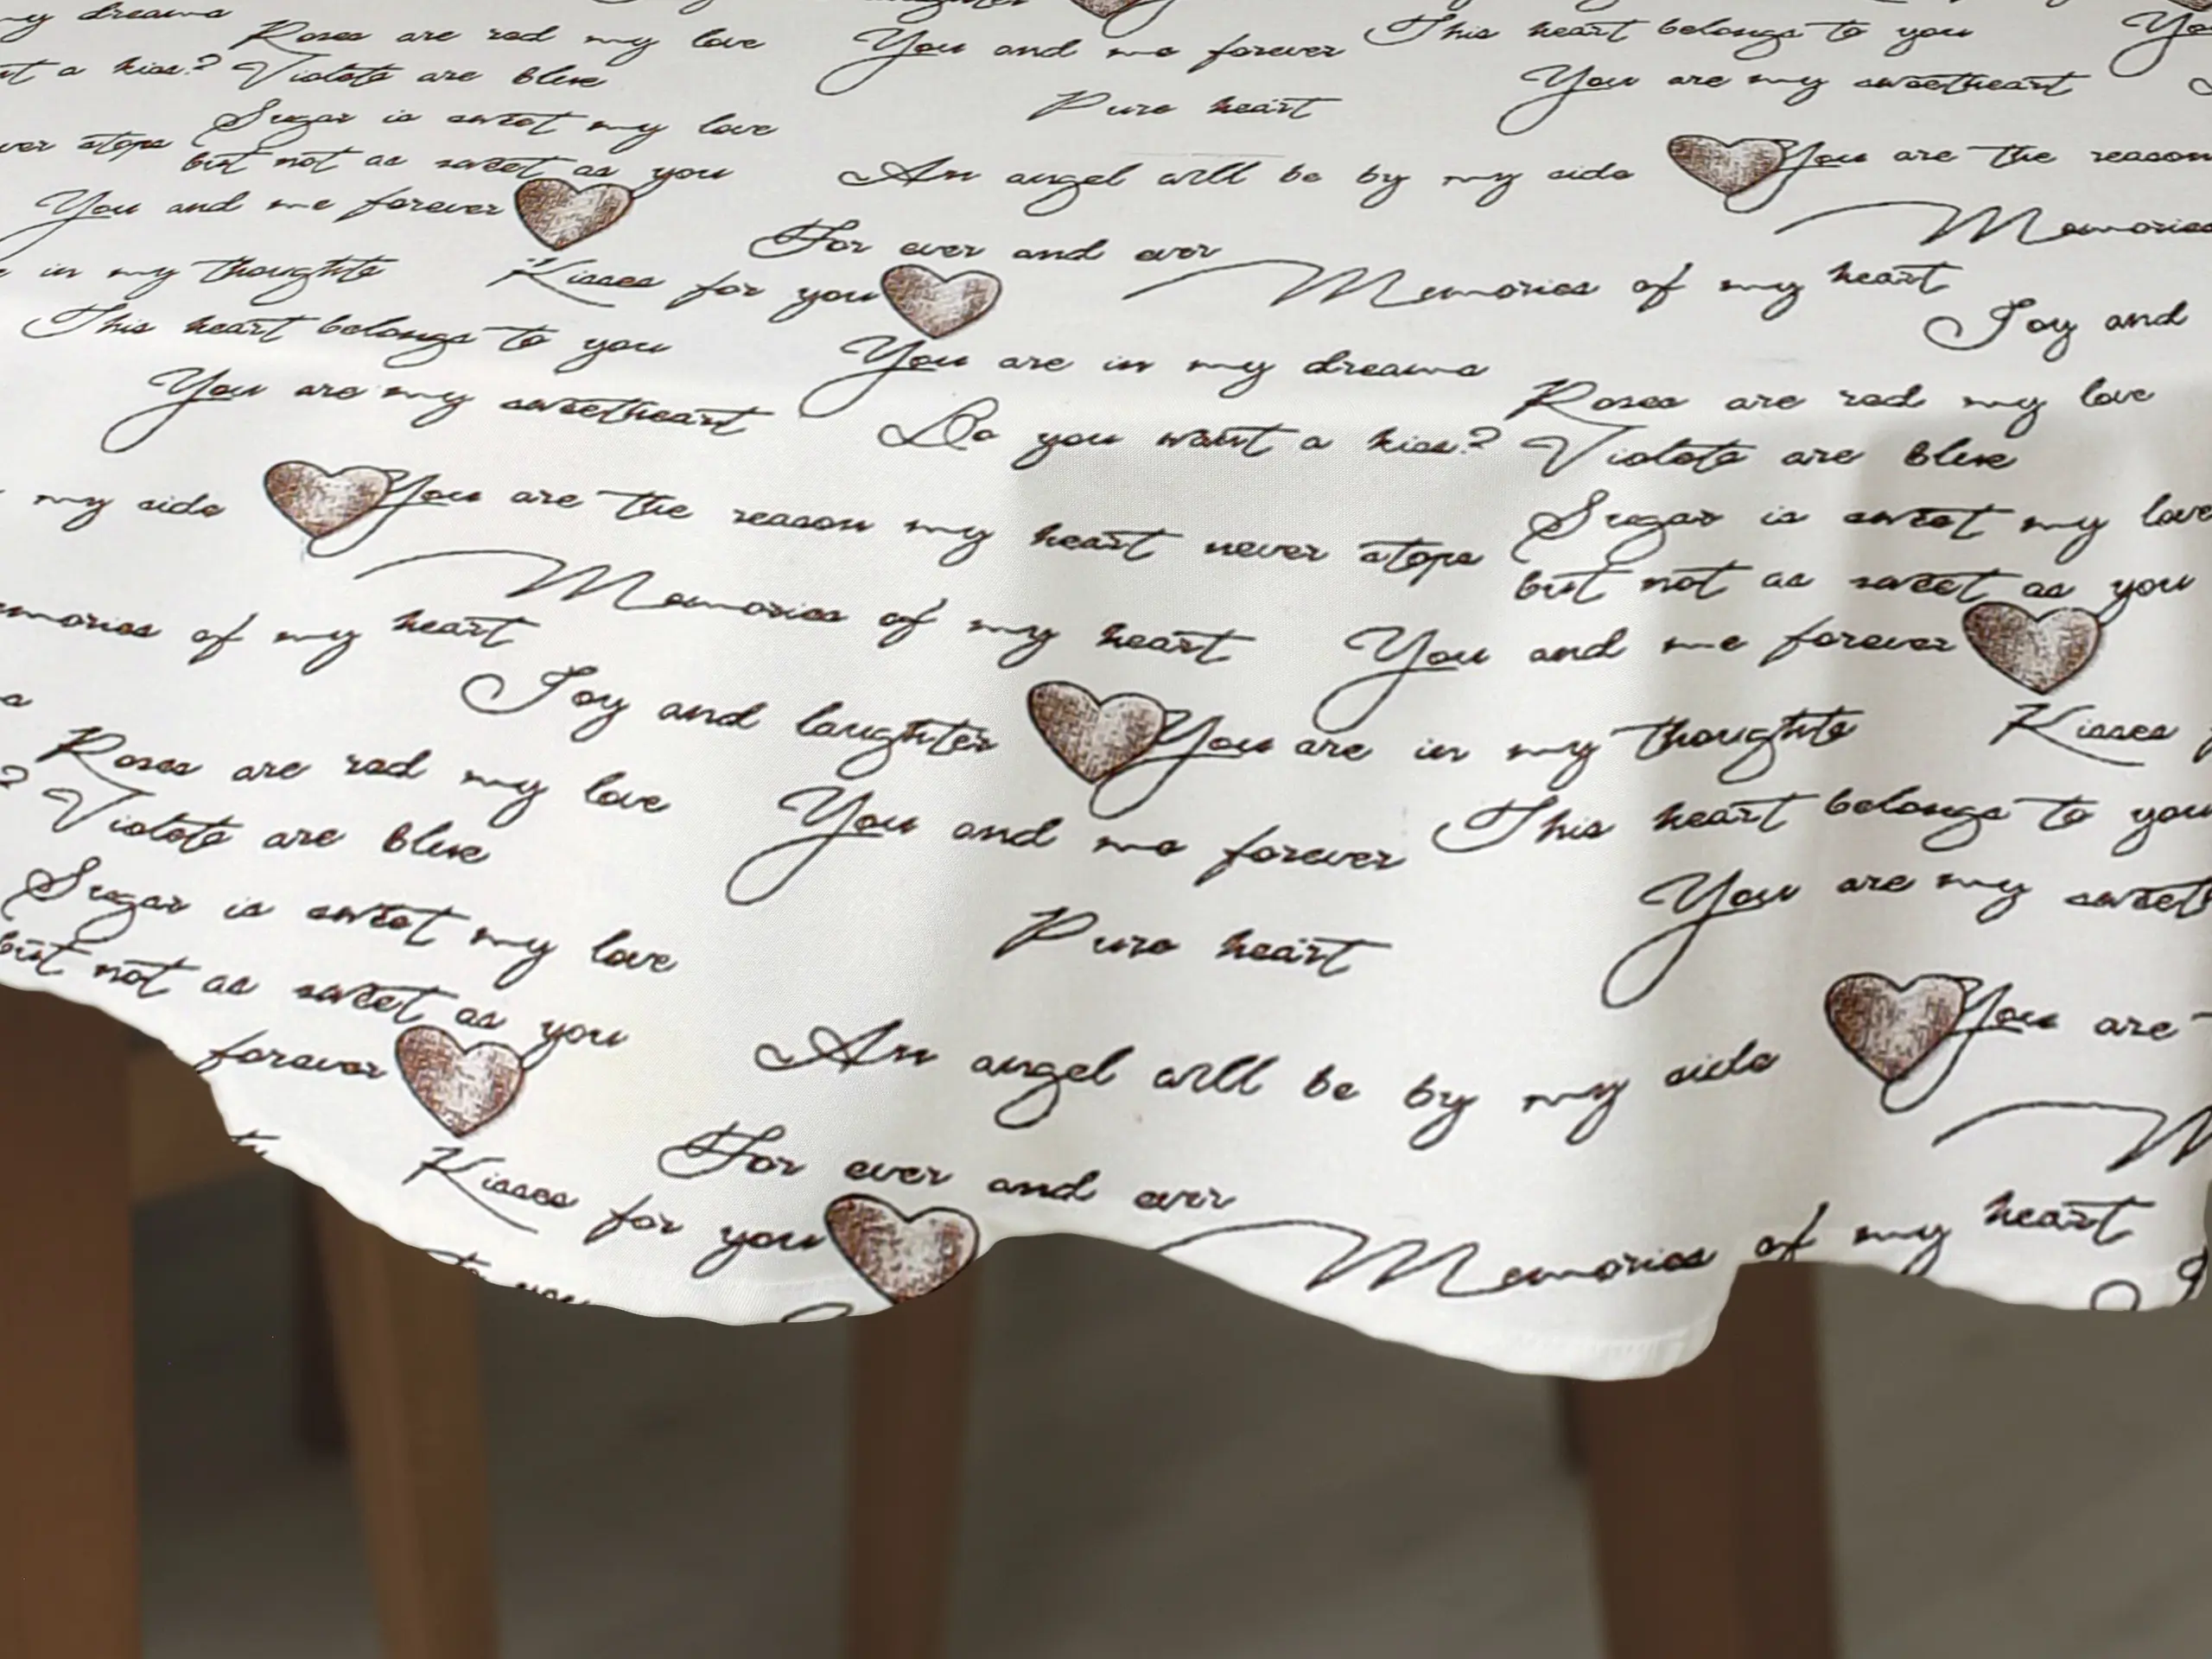 my dreams
Roses are red my love
You and me forever
This heart belongs to you
a kiss?
Violets are blue
You are my sweetheart
Sugar is sweet my love
Pure heart
stops
but not as sweet as you
An angel will be by my side
You are the reason
You and me forever
For ever and ever
Memories
in my thoughts
Kisses for you
Memories of my heart
This heart belongs to you
Joy and
You are in my dreams
You are my sweetheart
Roses are red my love
Do you want a kiss?
Violets are blue
my side
You are the reason my heart never stops
Sugar is sweet my love
but not as sweet as you
Memories of my heart
You and me forever
of my heart
Joy and laughter
You are in my thoughts
Kisses
Roses are red my love
You and me forever
This heart belongs to you
Violets are blue
You are my
Sugar is sweet my love
Pure heart
but not as sweet as you
You are
forever
An angel will be by my side
For ever and ever
Kisses for you
Memories of my heart